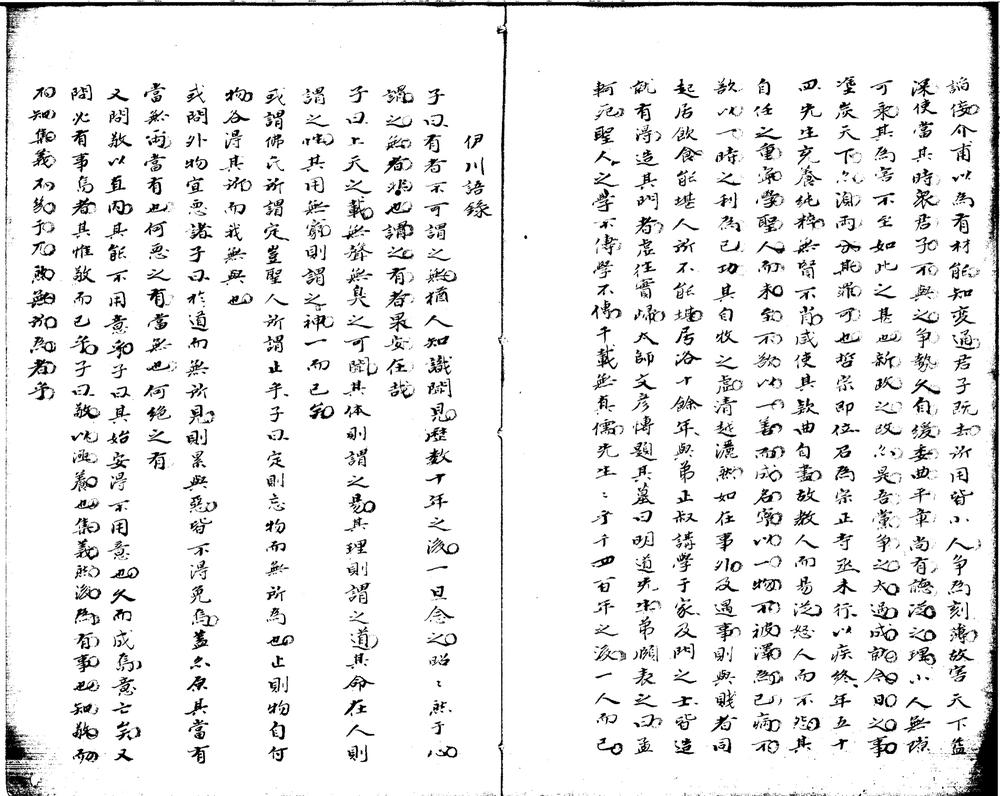 諂佞介甫以為有材能知変通君子既去所用皆小人争為刻薄故害天下益
深使當其時衆君子不與之争勢久自緩委曲平章尚有聴従之理小人無隙
可乘其為害不至如此之甚也新政之改亦是吾党争之太過成就今日之事
塗炭天下亦須両分其罪可也哲宗即位召為宗正寺丞未行以疾終年五十
四先生充養純粹無賢不肖咸使其欵曲自盡故教人而易従怒人而不怨其
自任之重寧學聖人而未至不欲以一善而成名寧以一物不被澤為己病不
欲以一時之利為己功其自牧之虚清越灑然如在事外及遇事則與賤者同
起居飲食能堪人所不能堪居洛十餘年與弟正叔講學于家及門之士皆造
就有得造其門者虚往實歸太師文彦博題其墓曰明道先生弟頤表之曰孟
軻死聖人之學不傳學不傳千載無真儒先生：乎千四百年之後一人而已
伊川語錄
子曰有者不可謂之無猶人知識聞見歴数十年之後一旦念之昭：然于心
謂之無者非也謂之有者果安在哉
子曰上天之載無聲無臭之可聞其体則謂之易其理則謂之道其命在人則
謂之性其用無窮則謂之神一而已矣
或謂佛氏所謂定豈聖人所謂止乎子曰定則忘物而無所為也止則物自付
物各得其所而我無與也
或問外物宜悪諸子曰於道而無所見則累與惡皆不得免焉蓋亦原其當有
當無爾當有也何悪之有當無也何絶之有
又問敬以直内其能不用意乎子曰其始安得不用意也久而成焉意亡矣又
問必有事焉者其惟敬而已乎子曰敬以涵養也集義然後為有事也知敬而
不知集義不幾于兀然無所為者乎